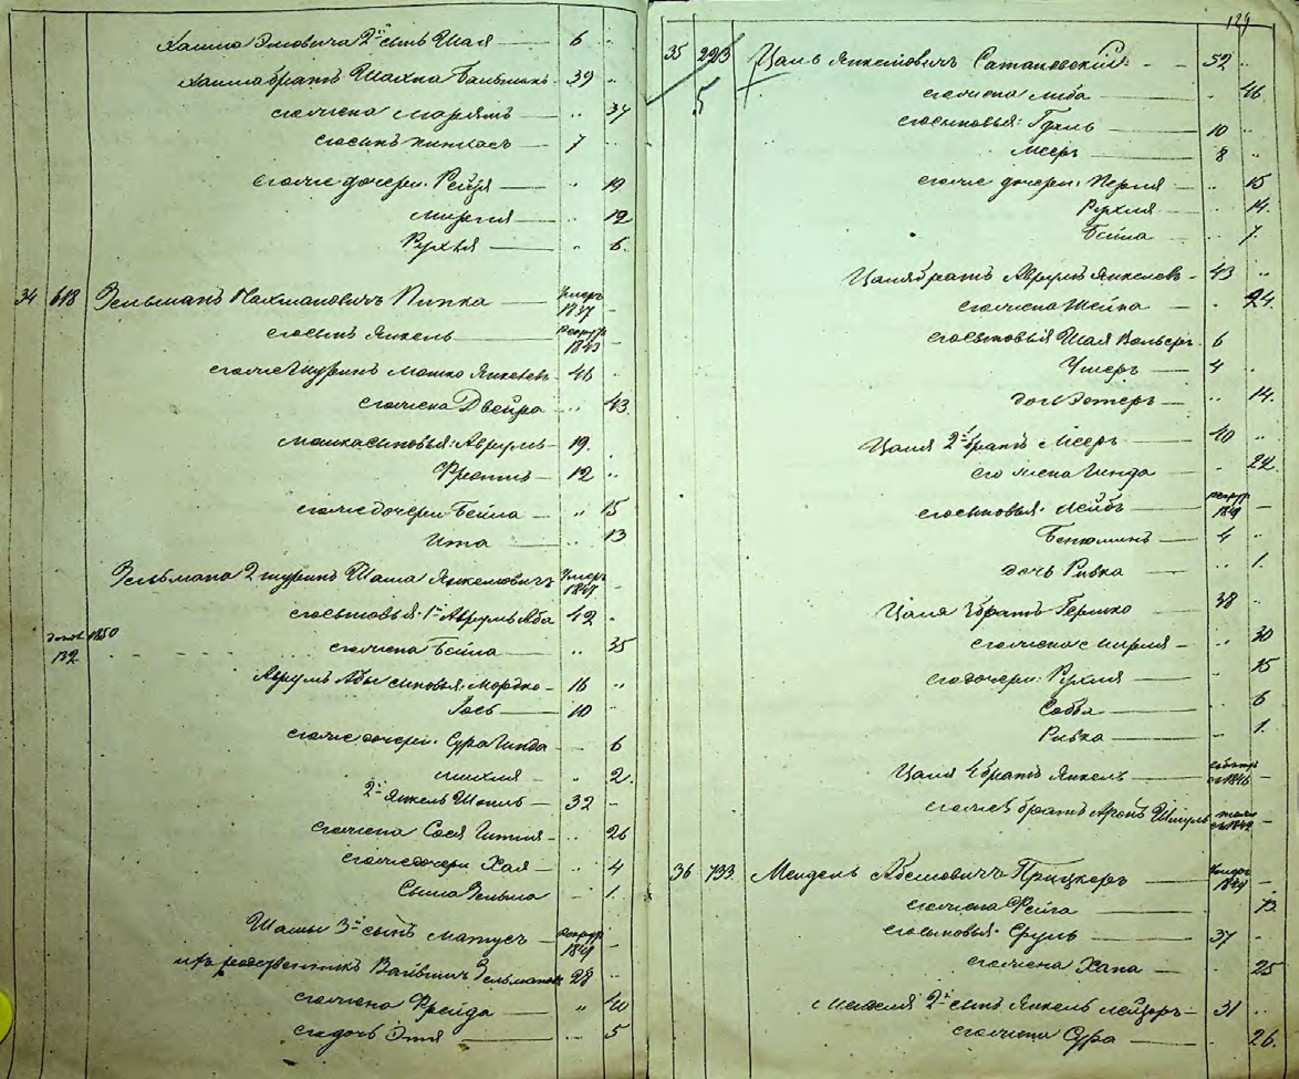 Хаима Эмовича 2й сынъ Шая — 6 "
Хаима братъ Шахна Бальшинъ 39 "
его жена Марьямъ — " 34
его сынъ Пинкасъ — 7 "
его же дочери: Рейзя — " 19
Миргля — " 12
Рухля — " 6.
34 618 Зельманъ Нахмановичъ Пипка — умеръ 1837 —
его сынъ Янкель — рекрутъ 1843 —
его же шуринъ Мошко Янкелевъ 46 "
его жена Двейра " 43
Мошка сыновья: Аврумъ — 19. "
Фроимъ — 12 "
его же дочери Бейла — " 15
Ита — " 13
Зельмана 2 шуринъ Шама Янкелевичъ умеръ 1848 —
его сыновья 1й Аврумъ Аба 42 "
допол. 1850 132 его жена Бейла — " 35
Аврумъ Абы сыновья: Мордко — 16 "
Іось — 10 "
его же дочери: Сура Гинда — 6
Михля — " 2.
2й Янкель Шмиль — 32 —
его жена Сося Гитля — " 26
его же дочери Хая — " 4
Сима Зельма — 1.
Шамы 3й сынъ Матусъ — рекрутъ 1849 —
ихъ родственникъ Вайвишъ Зельмановъ 28 "
его жена Фрейда — " 20
его дочь Этя — " 5
129
35 223 5 Цаль Янкелевичъ Сатановскій — 52 "
его жена Либа — " 46
его сыновья: Гдаль — 10 "
Мееръ — 8 "
его же дочери: Перля — " 15
Рухля — " 14.
Бейла " 7.
Цаля братъ Аврумъ Янкелевъ — 43 "
его жена Шейна — " 24.
его сыновья Шая Вольеръ 6
Ушеръ — 4 "
дочь Эстеръ — " 14.
Цаля 2й братъ Мееръ — 40 "
его жена Гинда — " 22.
его сыновья: Лейбъ — рекрутъ 1849 —
Бенюминъ — 4 "
дочь Ривка — " 1.
Цаля 3 братъ Гершко — 38 "
его жена Мирля — " 30
его дочери: Рухля — " 15
Собля — " 6
Ривка — " 1.
Цаля 4 братъ Янкель — съ 1846 —
его же 5 братъ Аронъ Шмуль съ 1849 —
36 733 Мендель Абелевичъ Прицкеръ — умеръ 1849 —
его жена Фейга — " 73.
его сыновья: Сруль — 37 —
его жена Хана — " 25
Менделя 2й сынъ Янкель Лейзеръ — 31 "
его жена Сура — " 26.